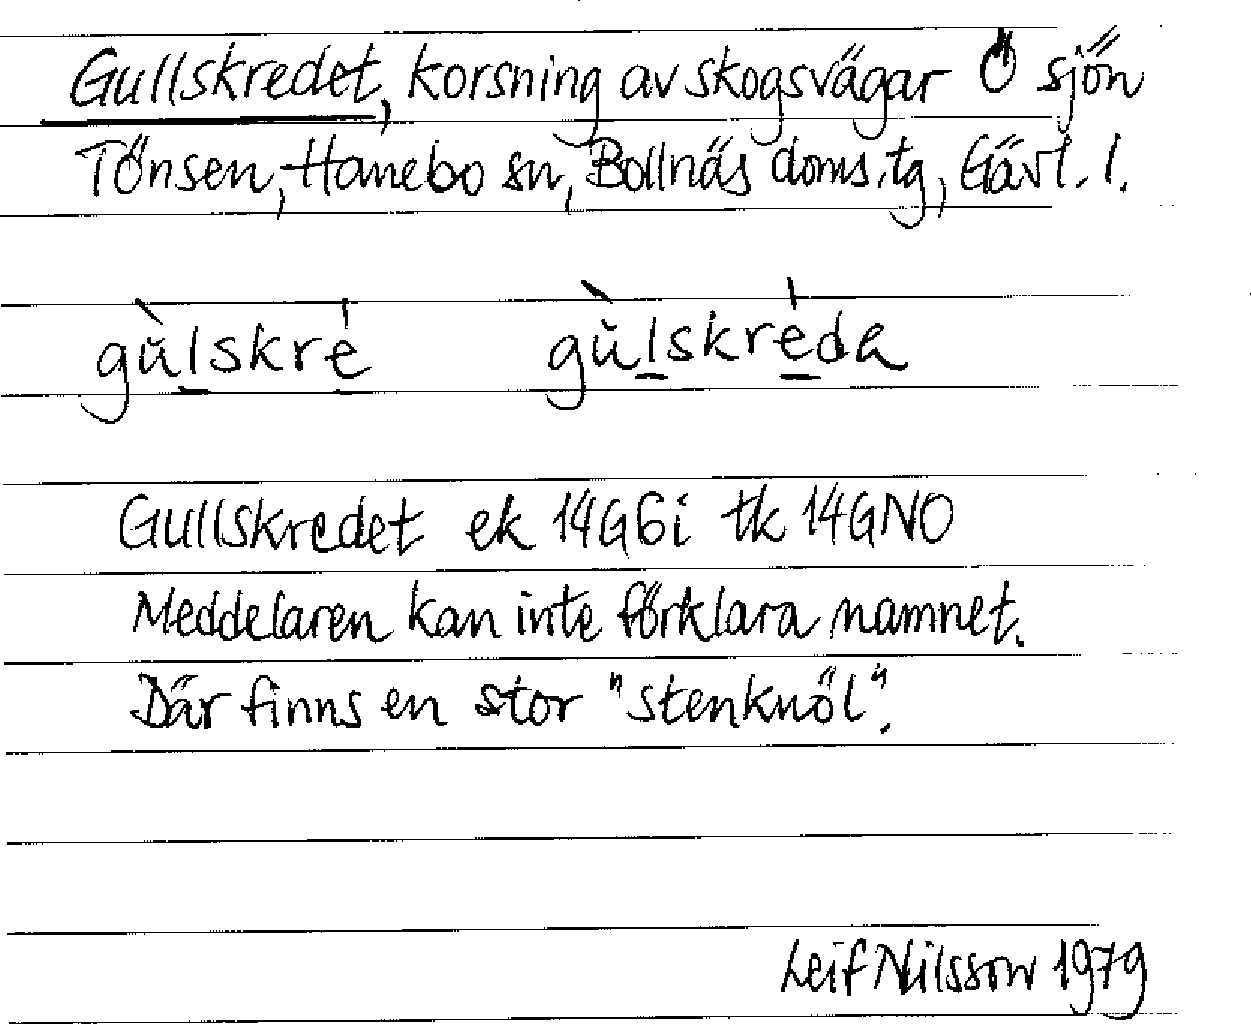 Gullskredet, korsning av skogsvägar Ö sjön
Tönsen, Hanebo sn, Bollnäs doms.tg, Gävl. l.
gùlskré gùlskréda
Gullskredet ek 14G6i tk 14GNO
Meddelaren kan inte förklara namnet.
Där finns en stor "stenknöl".
Leif Nilsson 1979